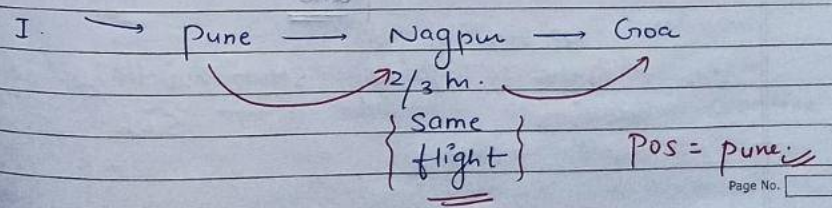 I. → Pune → Nagpur → Goa
2/3 h.
{ Same
flight }
POS = pune.
Page No.